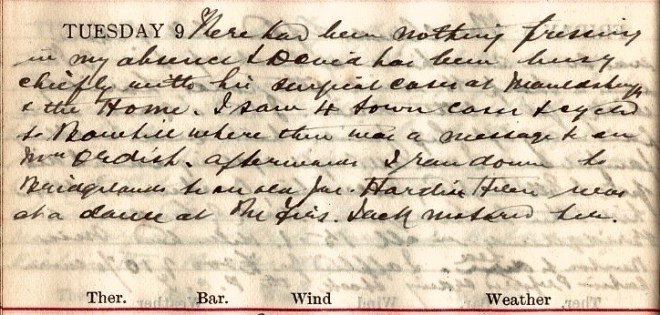 TUESDAY 9 There had been nothing pressing
in my absence & David has been busy
chiefly with his surgical cases at
& the Home. I saw 4 town cases & cycled
to Bowhill where there was a message to see
Mrs Ordish. Afterwards I ran down to
Bridgelands to see Jas. Hardie. Helen was
at a dance at The Firs. Jack motored her.
Ther. Bar. Wind Weather